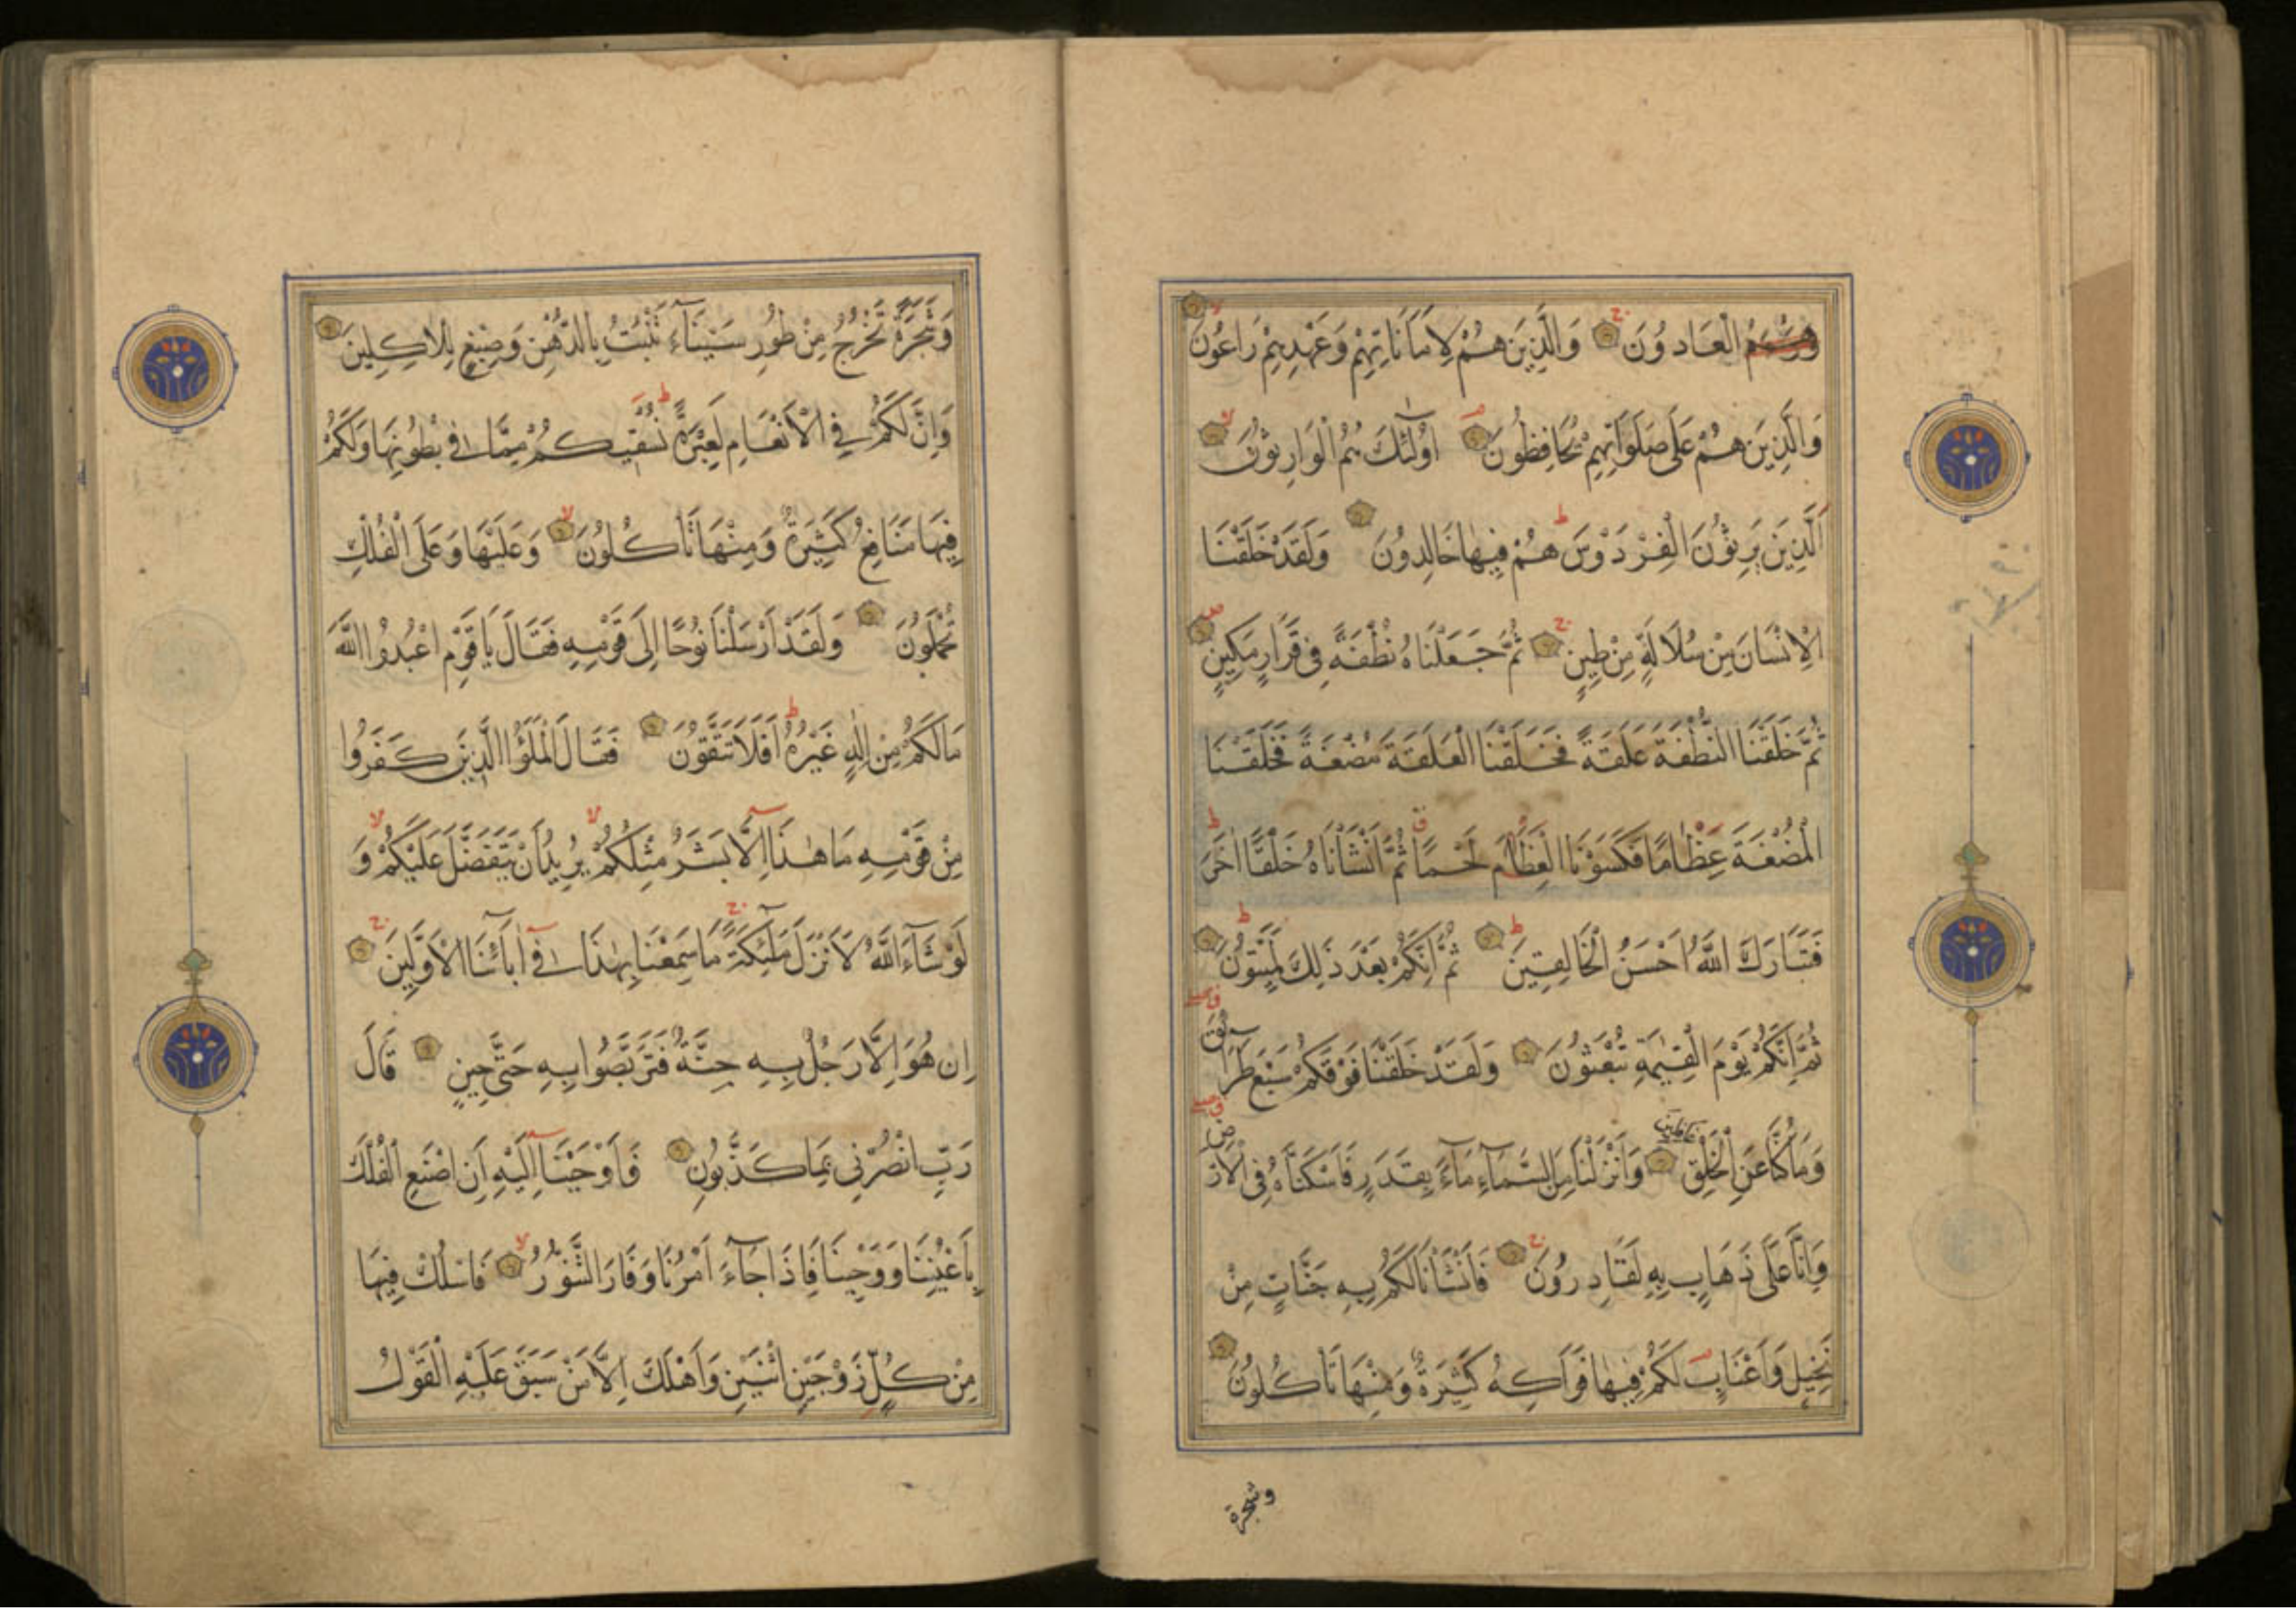 هُمُ الْعَادُونَ وَالَّذِينَ هُمْ لِاَمَانَاتِهِمْ وَعَهْدِهِمْ رَاعُونَ
وَالَّذِينَ هُمْ عَلَى صَلَوَاتِهِمْ يُحَافِظُونَ اُولٰئِكَ هُمُ الْوَارِثُونَ
اَلَّذِينَ يَرِثُونَ الْفِرْدَوْسَ هُمْ فِيهَا خَالِدُونَ وَلَقَدْ خَلَقْنَا
الْاِنْسَانَ مِنْ سُلَالَةٍ مِنْ طِينٍ ثُمَّ جَعَلْنَاهُ نُطْفَةً فِى قَرَارٍ مَكِينٍ
ثُمَّ خَلَقْنَا النُّطْفَةَ عَلَقَةً فَخَلَقْنَا الْعَلَقَةَ مُضْغَةً فَخَلَقْنَا
الْمُضْغَةَ عِظَامًا فَكَسَوْنَا الْعِظَامَ لَحْمًا ثُمَّ اَنْشَأْنَاهُ خَلْقًا اٰخَرَ
فَتَبَارَكَ اللّٰهُ اَحْسَنُ الْخَالِقِينَ ثُمَّ اِنَّكُمْ بَعْدَ ذٰلِكَ لَمَيِّتُونَ
ثُمَّ اِنَّكُمْ يَوْمَ الْقِيٰمَةِ تُبْعَثُونَ وَلَقَدْ خَلَقْنَا فَوْقَكُمْ سَبْعَ طَرَآئِقَ
وَمَا كُنَّا عَنِ الْخَلْقِ غَافِلِينَ وَاَنْزَلْنَا مِنَ السَّمَآءِ مَآءً بِقَدَرٍ فَاَسْكَنَّاهُ فِى الْاَرْضِ
وَاِنَّا عَلَى ذَهَابٍ بِهِ لَقَادِرُونَ فَاَنْشَأْنَا لَكُمْ بِهِ جَنَّاتٍ مِنْ
نَخِيلٍ وَاَعْنَابٍ لَكُمْ فِيهَا فَوَاكِهُ كَثِيرَةٌ وَمِنْهَا تَأْكُلُونَ
وشجرة
وَشَجَرَةً تَخْرُجُ مِنْ طُورِ سَيْنَآءَ تَنْبُتُ بِالدُّهْنِ وَصِبْغٍ لِلْاٰكِلِينَ
وَاِنَّ لَكُمْ فِى الْاَنْعَامِ لَعِبْرَةً نُسْقِيكُمْ مِمَّا فِى بُطُونِهَا وَلَكُمْ
فِيهَا مَنَافِعُ كَثِيرَةٌ وَمِنْهَا تَأْكُلُونَ وَعَلَيْهَا وَعَلَى الْفُلْكِ
تُحْمَلُونَ وَلَقَدْ اَرْسَلْنَا نُوحًا اِلَى قَوْمِهِ فَقَالَ يَا قَوْمِ اعْبُدُوا اللّٰهَ
مَا لَكُمْ مِنْ اِلٰهٍ غَيْرُهُ اَفَلَا تَتَّقُونَ فَقَالَ الْمَلَؤُا الَّذِينَ كَفَرُوا
مِنْ قَوْمِهِ مَا هٰذَآ اِلَّا بَشَرٌ مِثْلُكُمْ يُرِيدُ اَنْ يَتَفَضَّلَ عَلَيْكُمْ وَ
لَوْ شَآءَ اللّٰهُ لَاَنْزَلَ مَلٰٓئِكَةً مَا سَمِعْنَا بِهٰذَا فِىٓ اٰبَآئِنَا الْاَوَّلِينَ
اِنْ هُوَ اِلَّا رَجُلٌ بِهِ جِنَّةٌ فَتَرَبَّصُوا بِهِ حَتَّى حِينٍ قَالَ
رَبِّ انْصُرْنِى بِمَا كَذَّبُونِ فَاَوْحَيْنَآ اِلَيْهِ اَنِ اصْنَعِ الْفُلْكَ
بِاَعْيُنِنَا وَوَحْيِنَا فَاِذَا جَآءَ اَمْرُنَا وَفَارَ التَّنُّورُ فَاسْلُكْ فِيهَا
مِنْ كُلٍّ زَوْجَيْنِ اثْنَيْنِ وَاَهْلَكَ اِلَّا مَنْ سَبَقَ عَلَيْهِ الْقَوْلُ